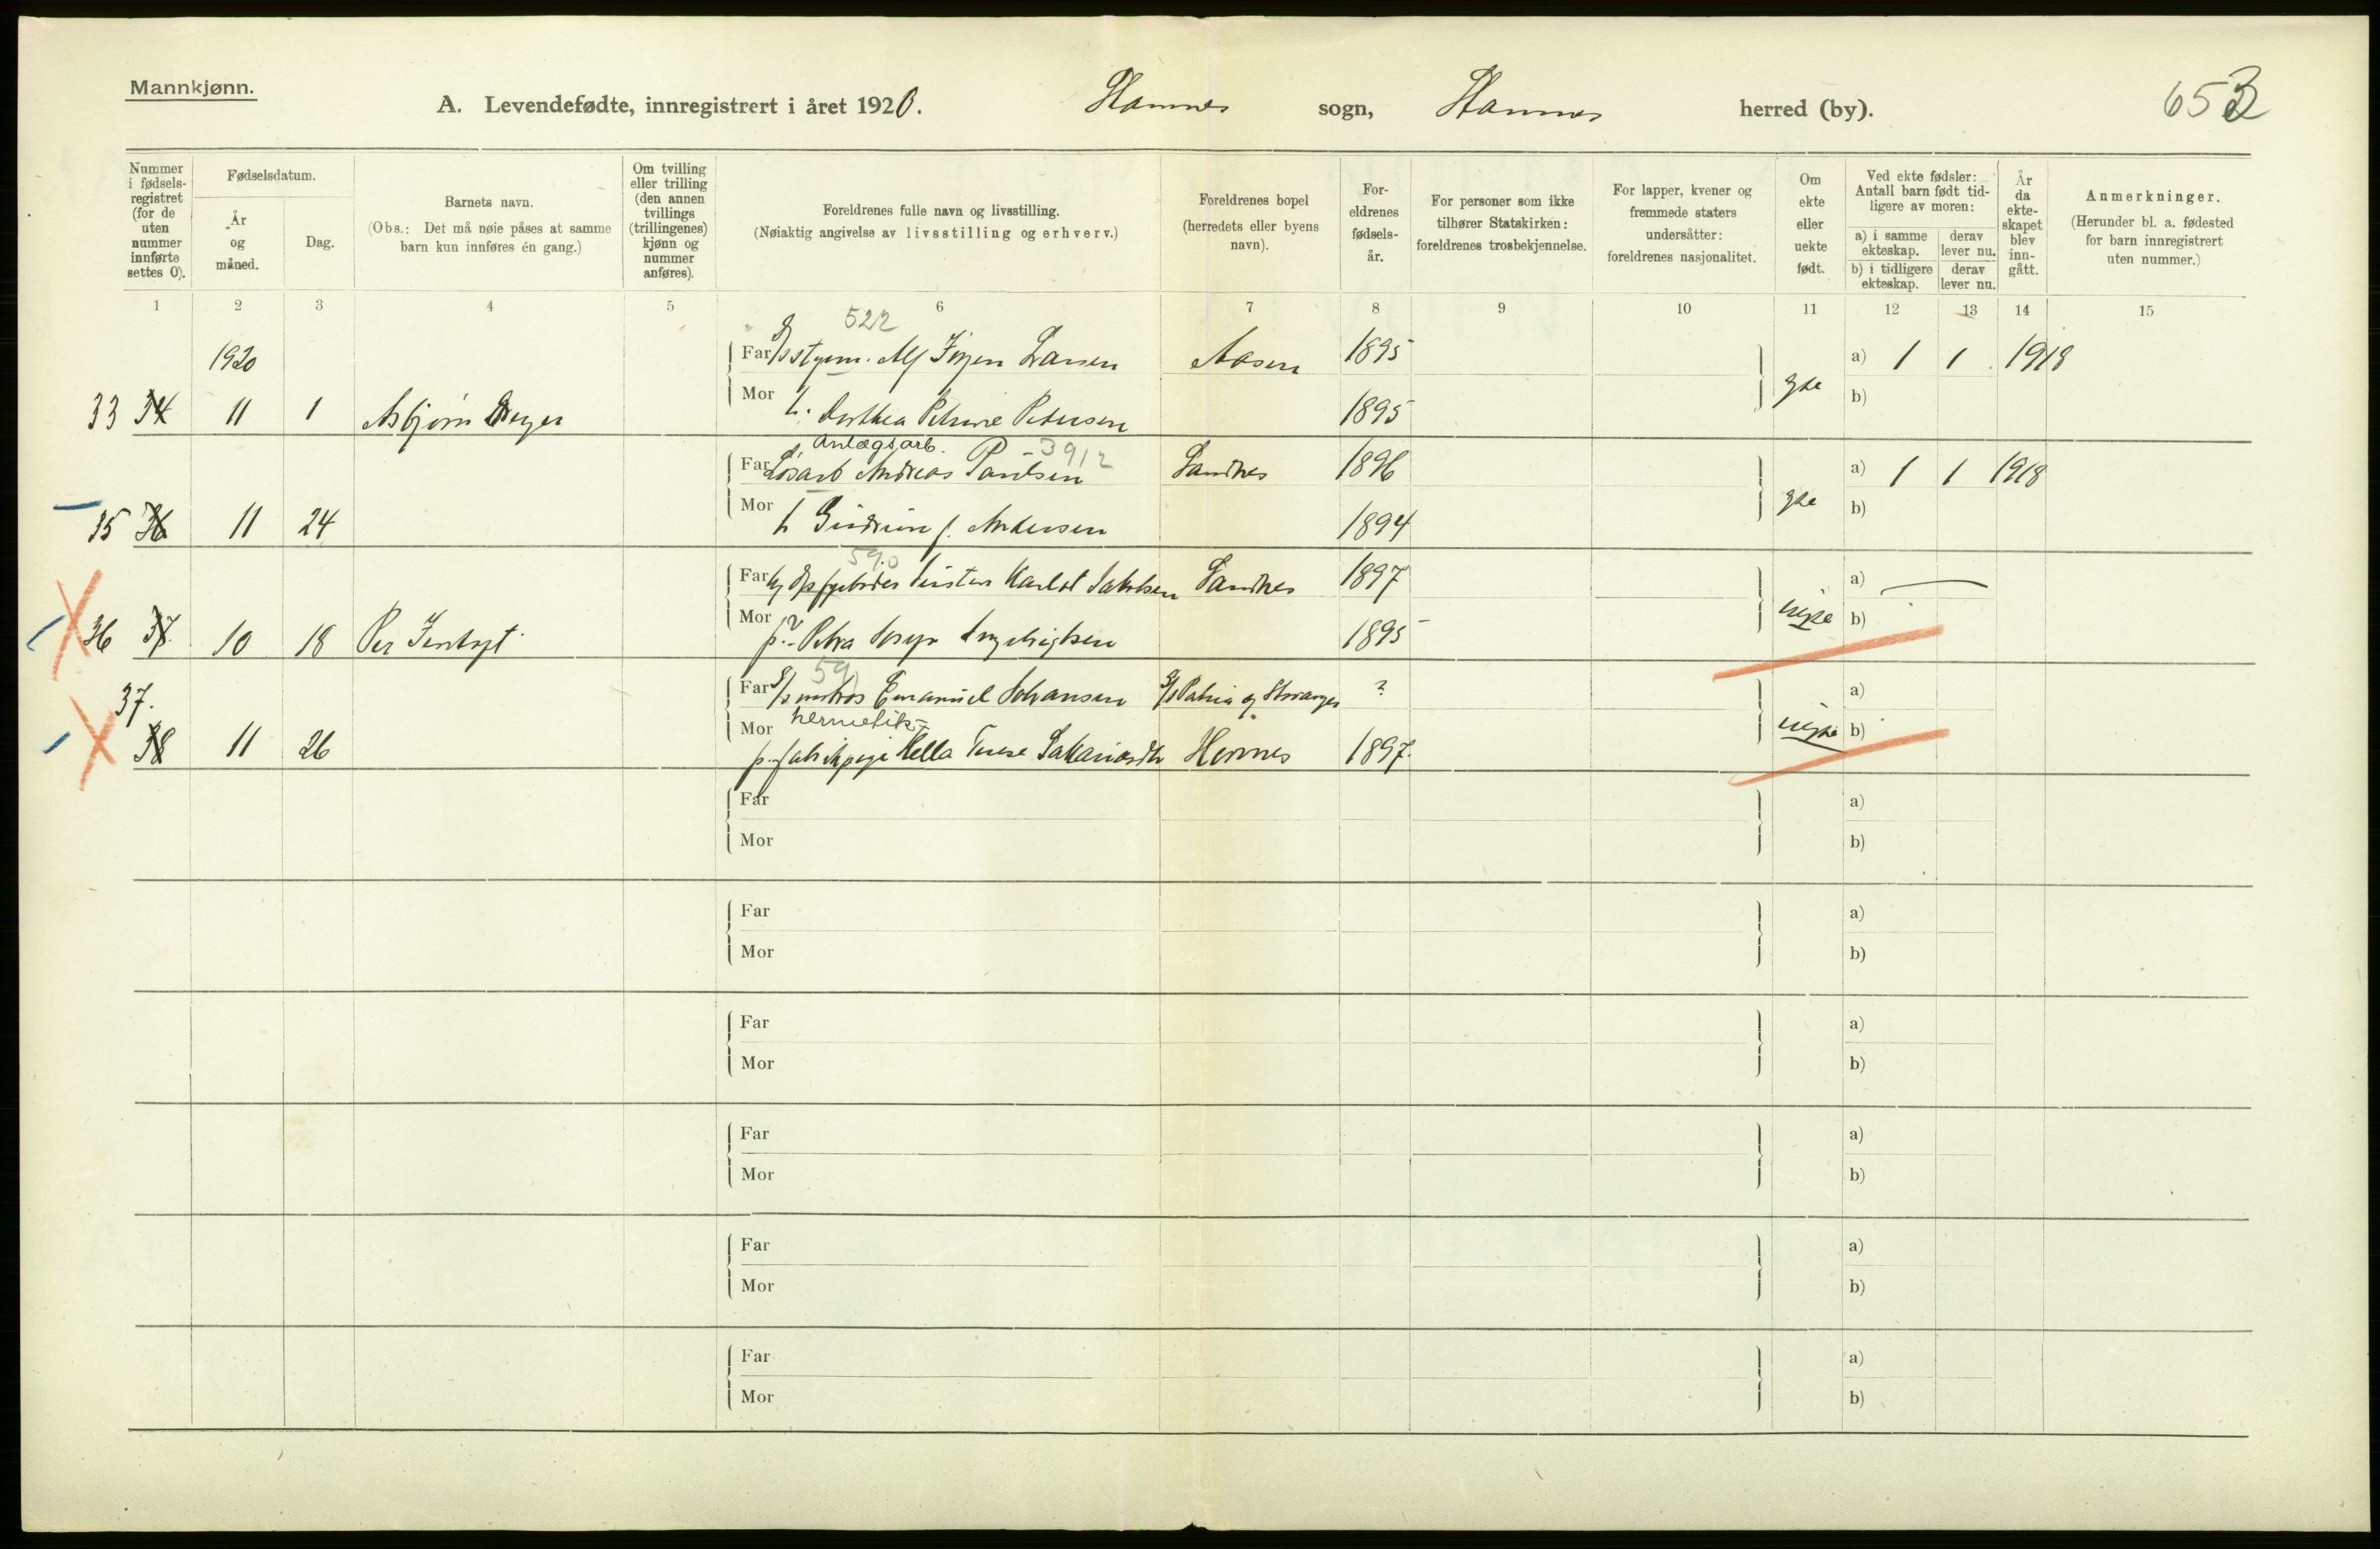 Mannkjønn.
A. Levendefødte, innregistrert i året 1920. sogn, herred (by). 653
Nummer i fødsels- registret (for de uten nummer innførte settes 0).
Fødselsdatum.
År og måned.
Dag.
Barnets navn.
(Obs.: Det må nøie påses at samme barn kun innføres én gang.)
Om tvilling eller trilling (den annen tvillings (trillingenes) kjønn og nummer anføres).
Foreldrenes fulle navn og livsstilling.
(Nøiaktig angivelse av livsstilling og erhverv.)
Foreldrenes bopel
(herredets eller byens navn).
For- eldrenes fødsels- år.
For personer som ikke tilhører Statskirken: foreldrenes trosbekjennelse.
For lapper, kvener og fremmede staters undersåtter: foreldrenes nasjonalitet.
Om ekte eller uekte født.
Ved ekte fødsler: Antall barn født tid- ligere av moren:
a) i samme ekteskap.
derav lever nu.
b) i tidligere ekteskap.
derav lever nu.
År da ekte- skapet blev inn- gått.
Anmerkninger.
(Herunder bl. a. fødested for barn innregistrert uten nummer.)
1 2 3 4 5 6 7 8 9 10 11 12 13 14 15
522
1920 Far Larsen Aasen 1895 a) 1 1 1918
33 34 11 1 Asbjørn Mor h. Dorthea Petrine Petersen 1895 b)
Anlægsarb. 3912
Far Løsarb Andreas Paulsen Sandnes 1896 a) 1 1 1918
35 36 11 24 Mor h Gudrun f. Andersen 1894 b)
590
Far Karlot Jakobsen Sandnes 1897 a)
36 37 10 18 Per Mor p. Petra 1895 uegte b)
591
37. Far matros Emanuel Johansen Stavanger ? a)
hermetik-
38 11 26 Mor p. Hella 1897. uegte b)
Far a)
Mor b)
Far a)
Mor b)
Far a)
Mor b)
Far a)
Mor b)
Far a)
Mor b)
Far a)
Mor b)